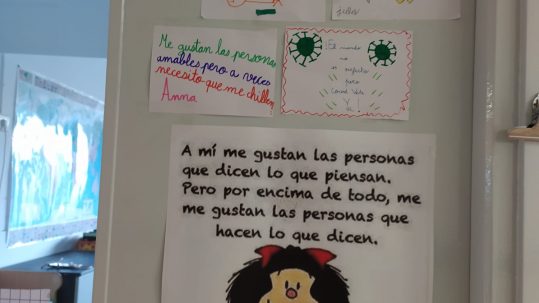 Julia
Me gustan las personas
amables pero a veces
necesito que me chillen
Anna
¡El mundo
no
es
perfecto
pero
A mí me gustan las personas
que dicen lo que piensan.
Pero por encima de todo, me
me gustan las personas que
hacen lo que dicen.